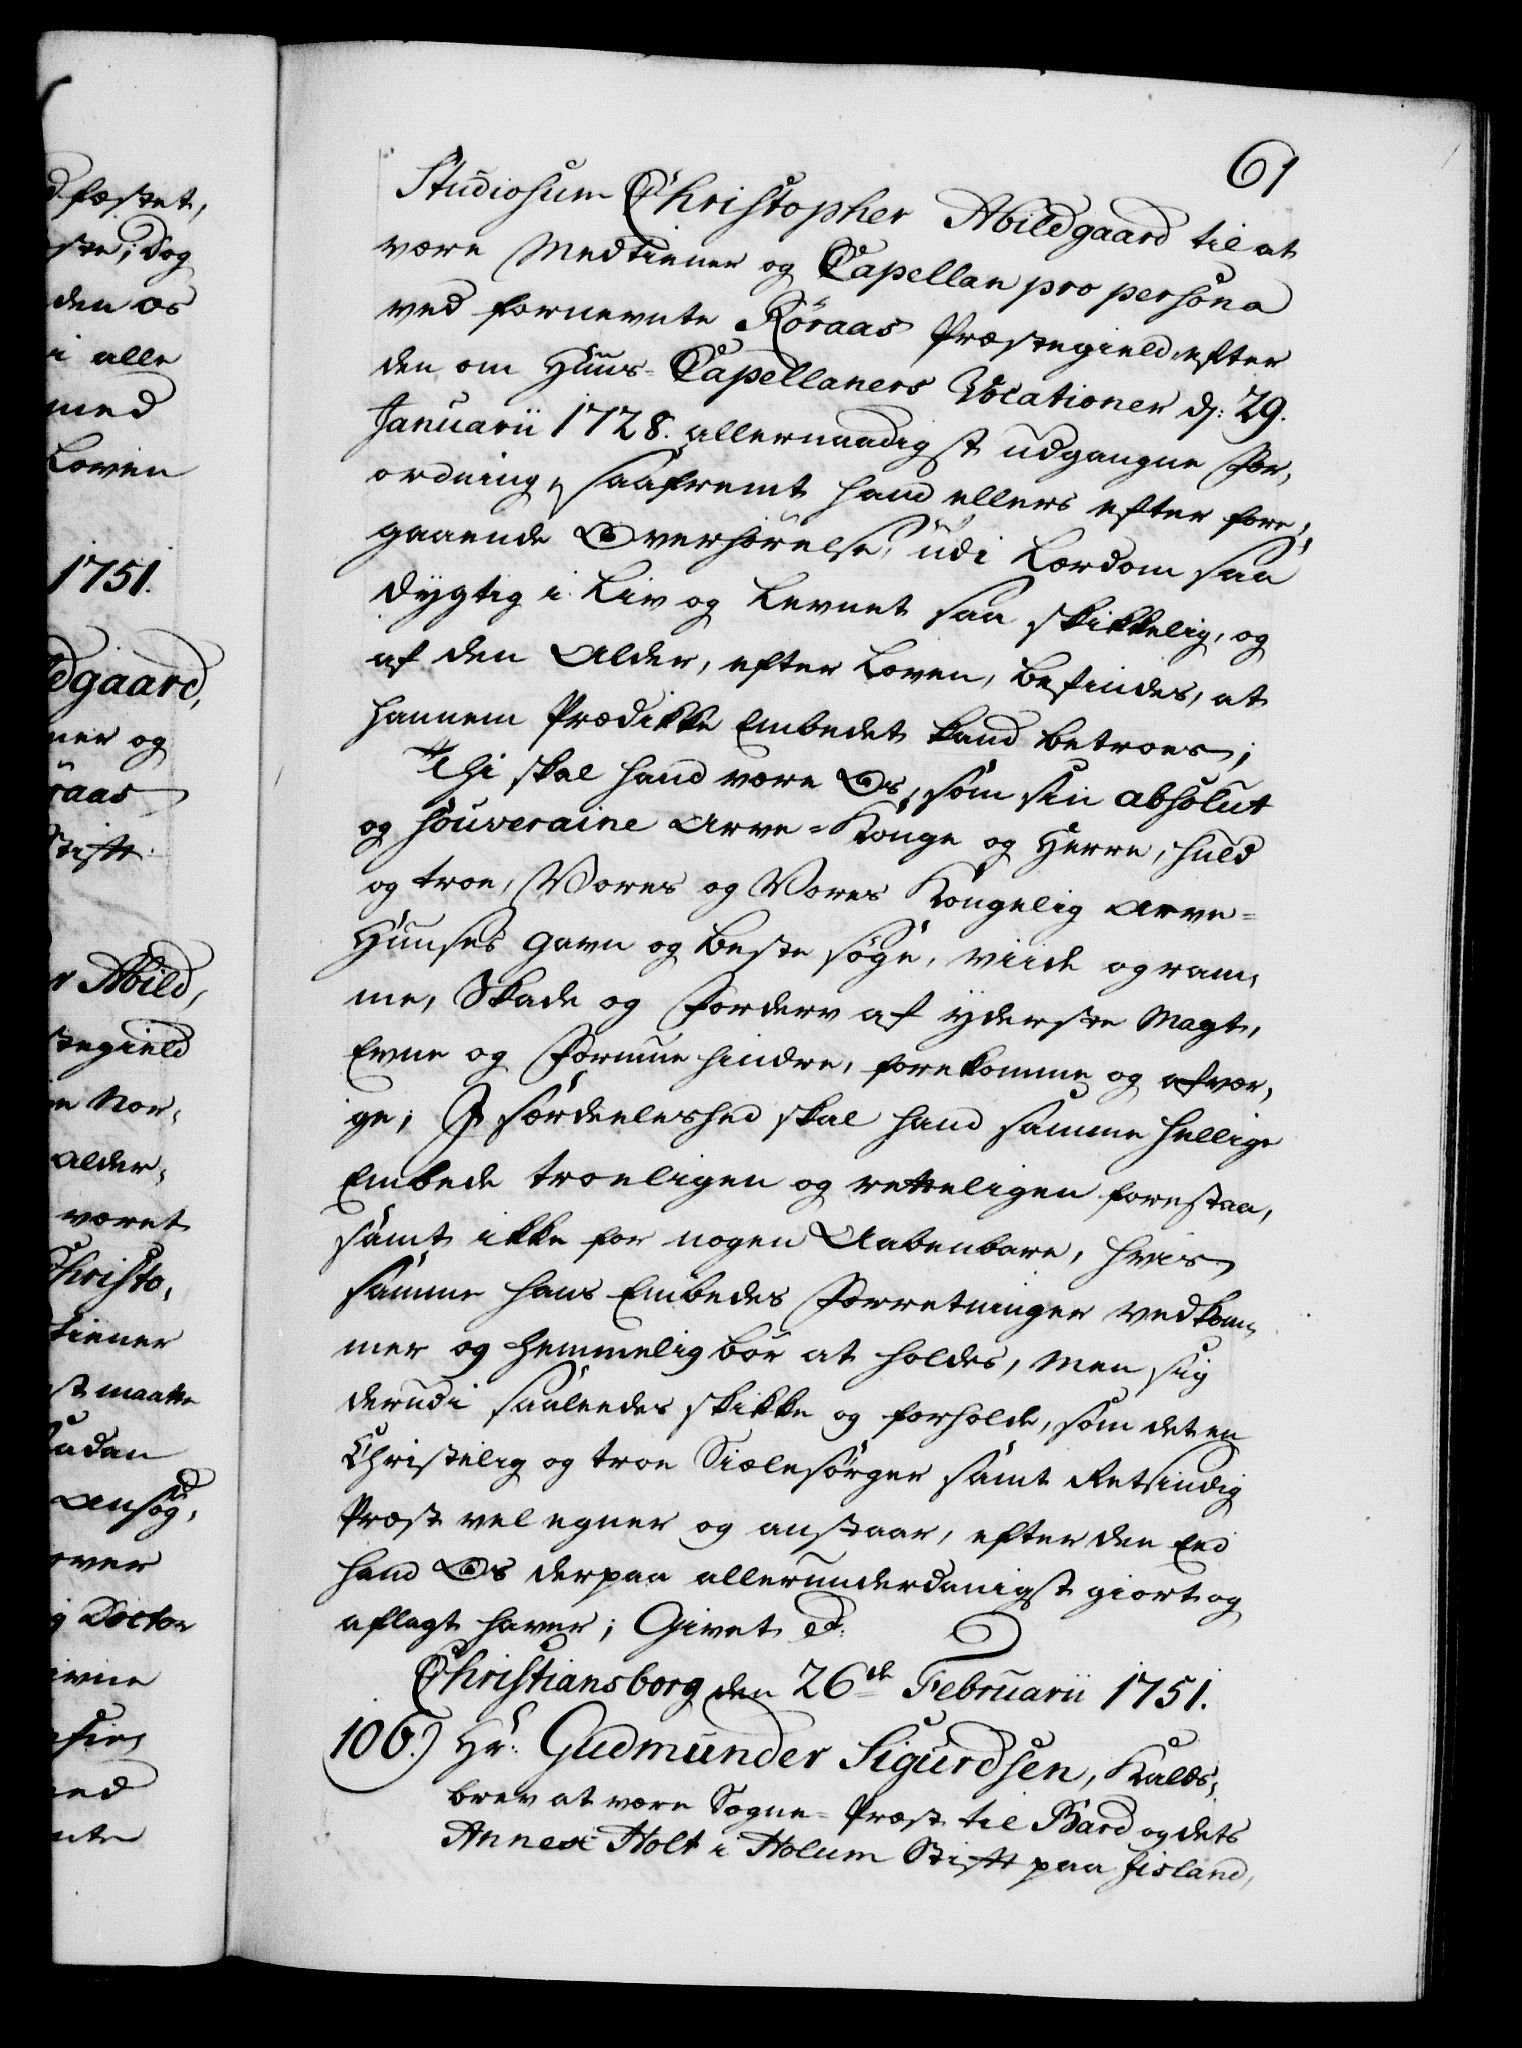 61
Studiosum Christopher Abildgaard til at
være Medtiener og Capellan pro persona
ved fornevnte Röraas Præstegield, efter
den om Huus-Capellaners Vocationer d: 29.
Januarii 1728. allernaadigst udgangne For,
ordning, saafremt hand ellers efter fore,
gaaende Overhörelse, udi Lærdom saa
dygtig i Liv og Levnet saa skikkelig, og
af den Alder, efter Loven, befindes, at
hannem Prædikke Embedet kand betroes;
Thi skal hand være Os, som sin absolut
og souveraine Arve-Konge og Herre, huld
og troe, Vores og Vores Kongelig Arve-
Huuses Gavn og beste söge, viide og ram,
me, Skade og Forderv af yderste Magt,
Evne og Formue hindre, forekomme og afvær,
ge; I særdeleshed skal hand samme hellige
Embede troeligen og retteligen forestaa,
samt ikke for nogen Aabenbare, hvis
samme hans Embedes Forretninger vedkom,
mer og hemmelig bör at holdes, Men sig
derudi saaleedes skikke og forholde, som det en
Christelig og troe Siælesörger samt Retsindig
Præst vel egner og anstaar, efter den Eed
hand Os derpaa allerunderdanigst giort og
aflagt haver; Givet &.
Christiansborg den 26de Februarii 1751.
106.) Hr: Gudmunder Sigurdsen, Kalds,
brev at være Sogne-Præst til Bard og dets
Annex Holt i Holum Stift paa Iisland,
d fæstet,
ste; Dog
den os
i alle
med
Loven
1751.
dgaard,
ner og
raas
Stift
r Abild,
stegield
e Nor,
Alder,
været
Christo,
tiener
st maatte
saadan
Ansög,
over
g Doctor
ivne
ed
nte